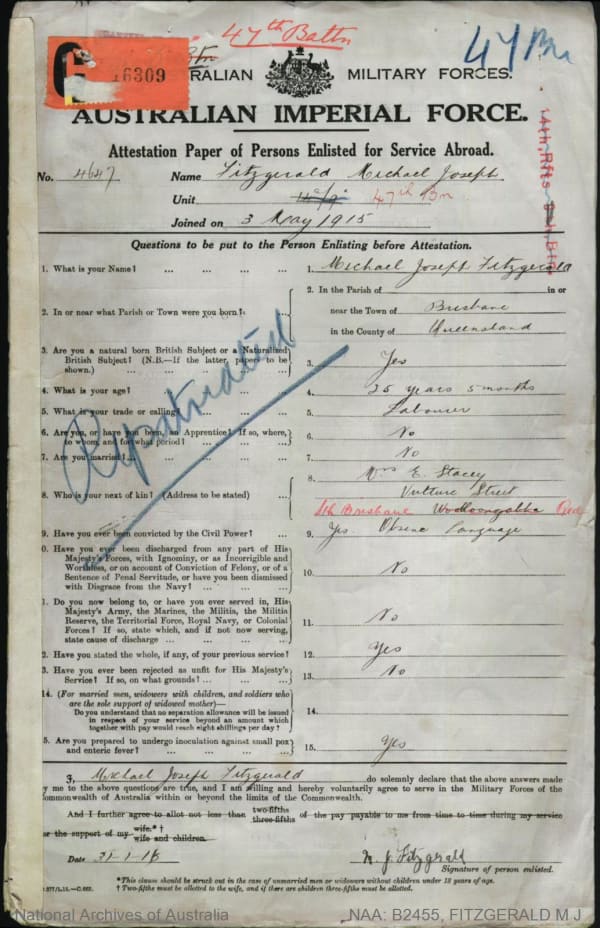 47th Battn
47 Bn
16309
AUSTRALIAN MILITARY FORCES.
AUSTRALIAN IMPERIAL FORCE.
Attestation Paper of Persons Enlisted for Service Abroad.
No. 4647 Name Fitzgerald Michael Joseph
Unit 47th Bn
Joined on 3 May 1915
14th, Rfts
Questions to be put to the Person Enlisting before Attestation.
1. What is your Name? ... ... ... ... 1. Michael Joseph Fitzgerald
2. In the Parish of in or
2. In or near what Parish or Town were you born? near the Town of Brisbane
in the County of Queensland
3. Are you a natural born British Subject or a Naturalized
British Subject? (N.B.—If the latter, papers to be
shown.) ... ... ... ... 3. Yes
4. What is your age? ... ... ... ... 4. 35 years 5 months
5. What is your trade or calling? ... ... ... 5. Labourer
6. Are you, or have you been, an Apprentice? If so, where,
to whom, and for what period? ... ... ... 6. No
7. Are you married? ... ... ... ... 7. No
8. Mrs E. Stacey
Vulture Street
8. Who is your next of kin? (Address to be stated) ...
Sth Brisbane Woolloongabba
9. Have you ever been convicted by the Civil Power? ... 9. Yes Obscene Language
0. Have you ever been discharged from any part of His
Majesty's Forces, with Ignominy, or as Incorrigible and
Worthless, or on account of Conviction of Felony, or of a
Sentence of Penal Servitude, or have you been dismissed
with Disgrace from the Navy? ... ... ... 10. No
1. Do you now belong to, or have you ever served in, His
Majesty's Army, the Marines, the Militia, the Militia
Reserve, the Territorial Force, Royal Navy, or Colonial
Forces? If so, state which, and if not now serving,
state cause of discharge ... ... ... 11. No
2. Have you stated the whole, if any, of your previous service? 12. Yes
3. Have you ever been rejected as unfit for His Majesty's
Service? If so, on what grounds? ... ... ... 13. No
14. (For married men, widowers with children, and soldiers who
are the sole support of widowed mother)—
Do you understand that no separation allowance will be issued
in respect of your service beyond an amount which
together with pay would reach eight shillings per day? 14.
5. Are you prepared to undergo inoculation against small pox
and enteric fever? ... ... ... ... 15. Yes
Repatriated
I, Michael Joseph Fitzgerald do solemnly declare that the above answers made
by me to the above questions are true, and I am willing and hereby voluntarily agree to serve in the Military Forces of the
Commonwealth of Australia within or beyond the limits of the Commonwealth.
And I further agree to allot not less than two-fifths three-fifths of the pay payable to me from time to time during my service
for the support of my wife.*† wife and children.
Date 31-1-16 M. J. Fitzgerald
Signature of person enlisted.
*This clause should be struck out in the case of unmarried men or widowers without children under 18 years of age.
† Two-fifths must be allotted to the wife, and if there are children three-fifths must be allotted.
National Archives of Australia NAA: B2455, FITZGERALD M J